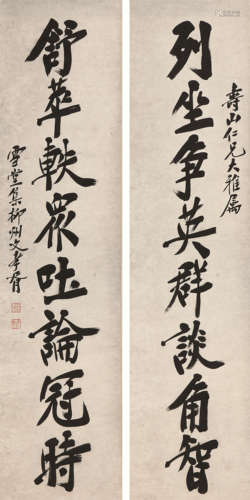 壽山仁兄大雅属
列坐争英群談角智
舒萃軼眾吐論冠時
雪堂集柳州文孝胥